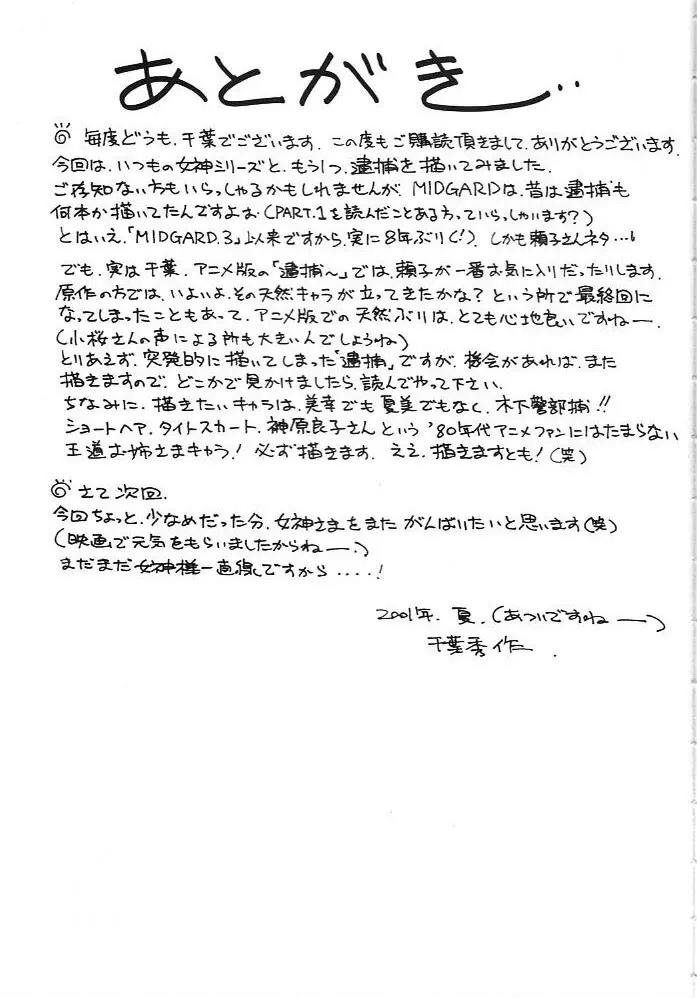 あとがき..
◎ 毎度どうも、千葉でございます. この度もご購読頂きまして、ありがとうございます.
今回は、いつもの女神シリーズと、もう1つ、逮捕を描いてみました.
ご存知ない方もいらっしゃるかもしれませんが、MIDGARDは、昔は逮捕も
何本か描いてたんですよね (PART.1を読んだことある方っていらっしゃいます?)
とはいえ、「MIDGARD.3」以来ですから、実に8年ぶり(!). しかも頼子さんネタ…。
でも、実は千葉、アニメ版の「逮捕〜」では、頼子が一番お気に入りだったりします.
原作の方では、いよいよ、その天然キャラが立ってきたかな? という所で最終回に
なってしまったこともあって、アニメ版での天然ぶりは、とても心地良いですねー.
(小桜さんの声による所も大きいんでしょうね)
とりあえず、突発的に描いてしまった「逮捕」ですが、機会があれば、また
描きますので、どこかで見かけましたら、読んでやって下さい.
ちなみに、描きたいキャラは、美幸でも夏美でもなく、木下警部補!!
ショートヘア、タイトスカート、神原良子さんという '80年代アニメファンにはたまらない
王道お姉さまキャラ! 必ず描きます. ええ、描きますとも! (笑)
◎ さて次回.
今回ちょっと、少なめだった分、女神さまをまた がんばりたいと思います(笑)
(映画で元気をもらいましたからねー.)
まだまだ女神様一直線ですから....!
2001年. 夏. (あついですねー)
千葉秀作.